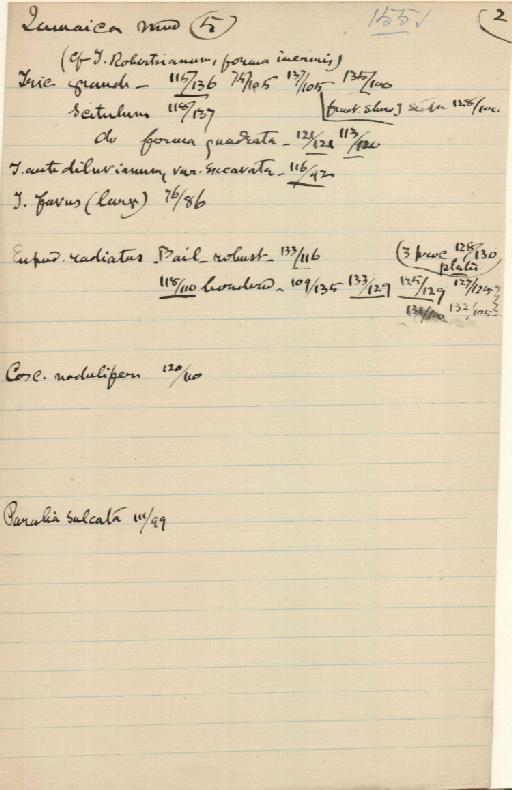 Jamaica mud (5) 155✓ (2
(cf T. Robertsianum, forma inermis)
Tric. grande - 115/136 75/105 137/105 135/100
Scitulum 118/137 fract. shows 128/100
do forma quadrata - 121/121 113/120
T. antediluvianum, var. excavata - 116/92
T. favus (large) 76/86
Eupod. radiatus - Bail - robust - 133/116 (3 proc 128/130
plates
118/110 bordered - 109/135 133/129 125/129 127/125
132/105
Cosc. nodulifer 120/110
Paralia sulcata 111/99